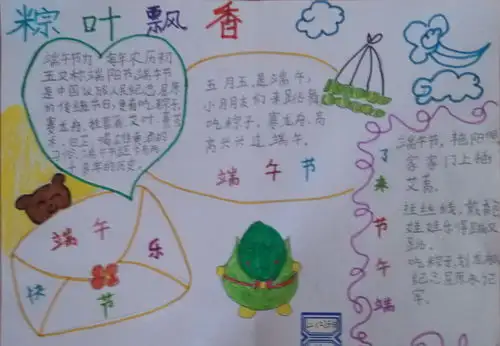 粽叶飘香
端午节为每年农历初
五又称端阳节端午节
是中国汉族人民纪念屈原
的传统节日,更有吃粽子
赛龙舟,挂菖蒲艾叶,薰苍
术
多年的历史。
五月五是端午,
小朋友们来跳舞
吃粽子,赛龙舟,高
高兴兴过端午。
端午节
端午
快乐
节
了来节午端
端午节,艳阳
家家门上插
艾蒿。
挂丝线,戴
娃娃乐得蹦又
跳。
吃粽子,划龙
纪念屈原永记
牢。